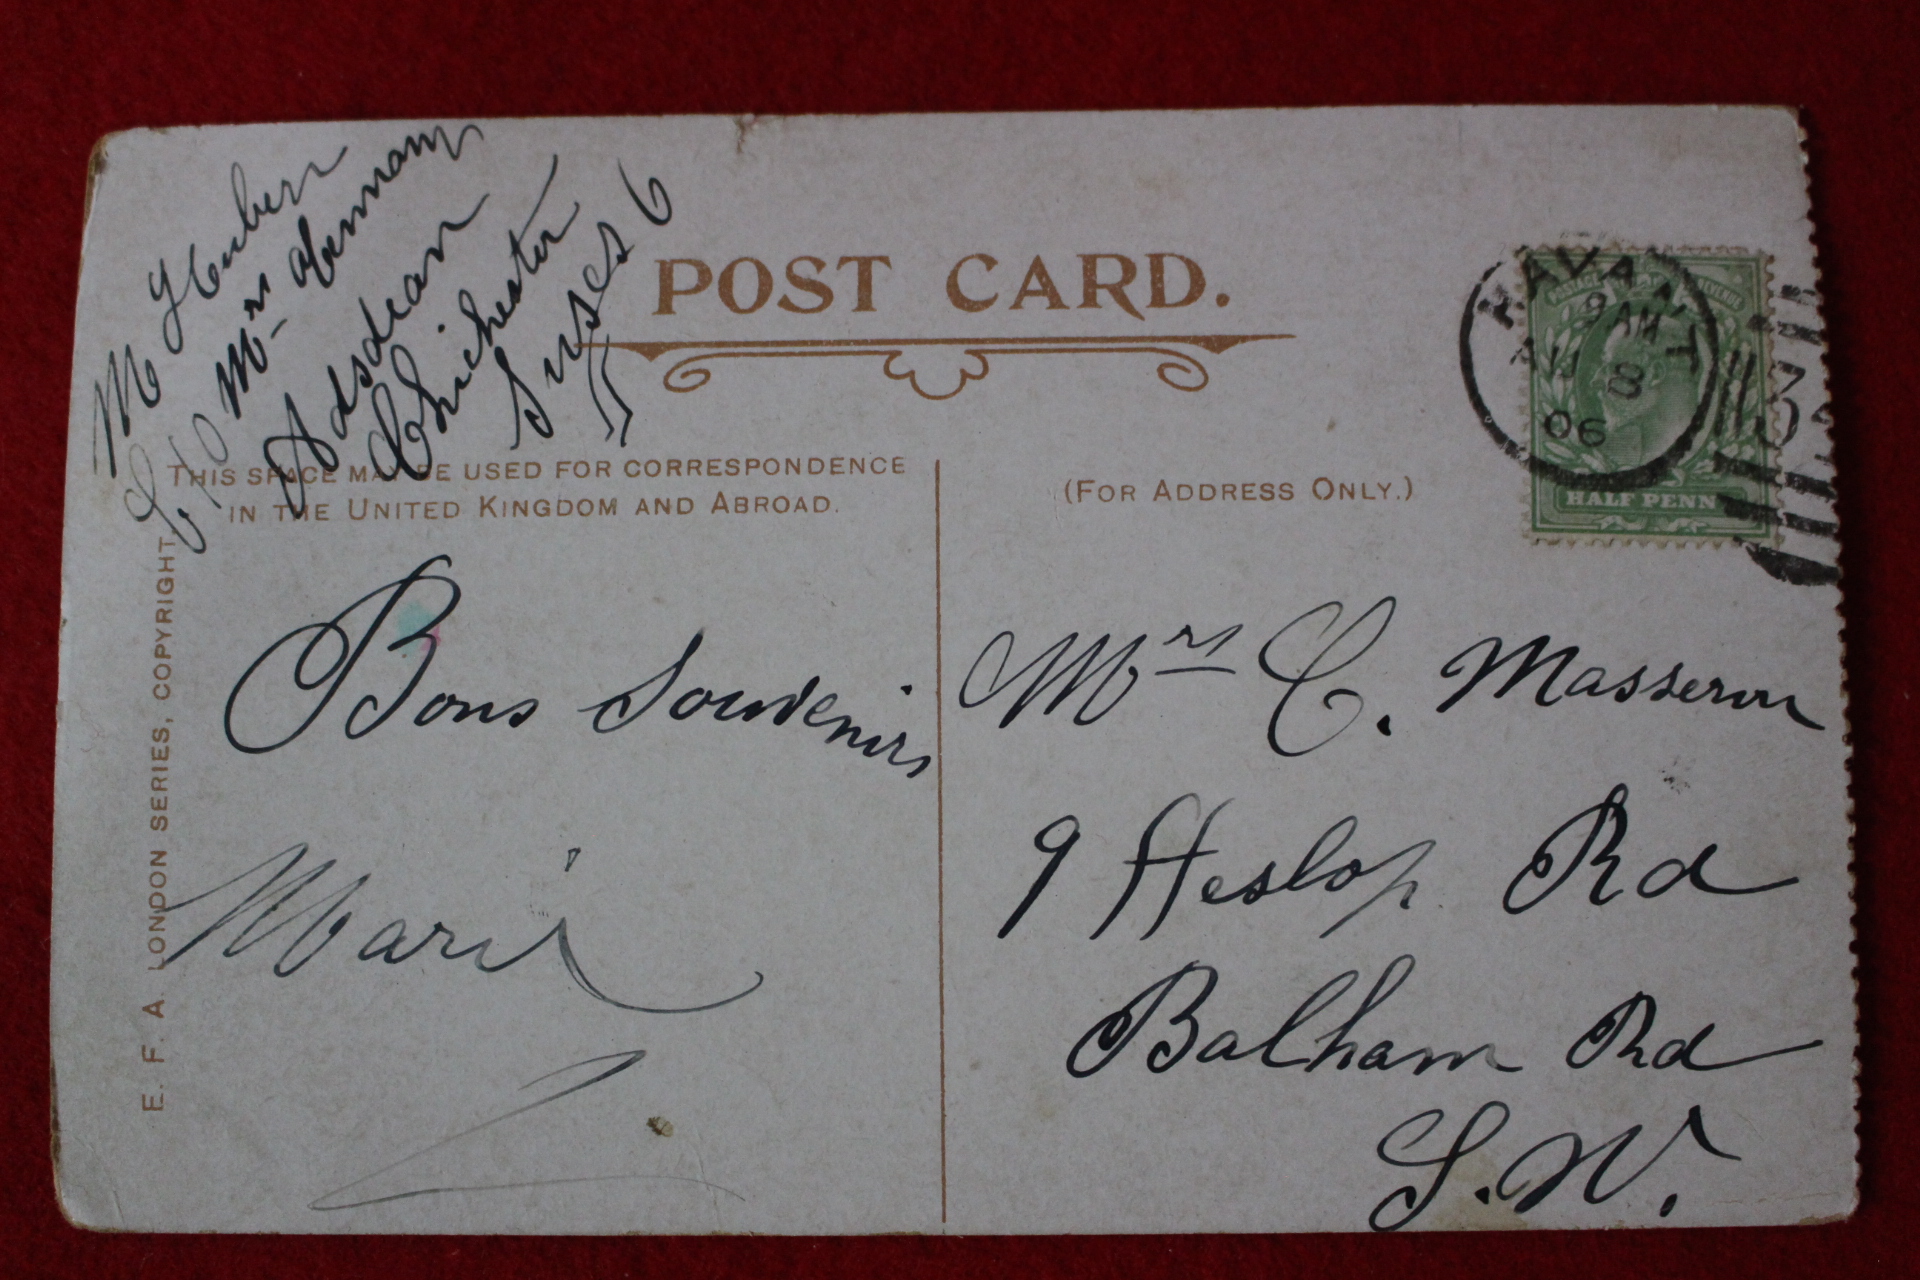 M Huber
C/o Mrs
Adsdean
Chichester
Sussex
POST CARD.
THIS SPACE MAY BE USED FOR CORRESPONDENCE
IN THE UNITED KINGDOM AND ABROAD.
(FOR ADDRESS ONLY.)
HAVANT
9 AM
AU 8
06
POSTAGE REVENUE
HALF PENN
E. F. A. LONDON SERIES, COPYRIGHT.
Bons Souvenirs
Marie
Mrs C.
9 Heslop Rd
Balham Rd
S.W.